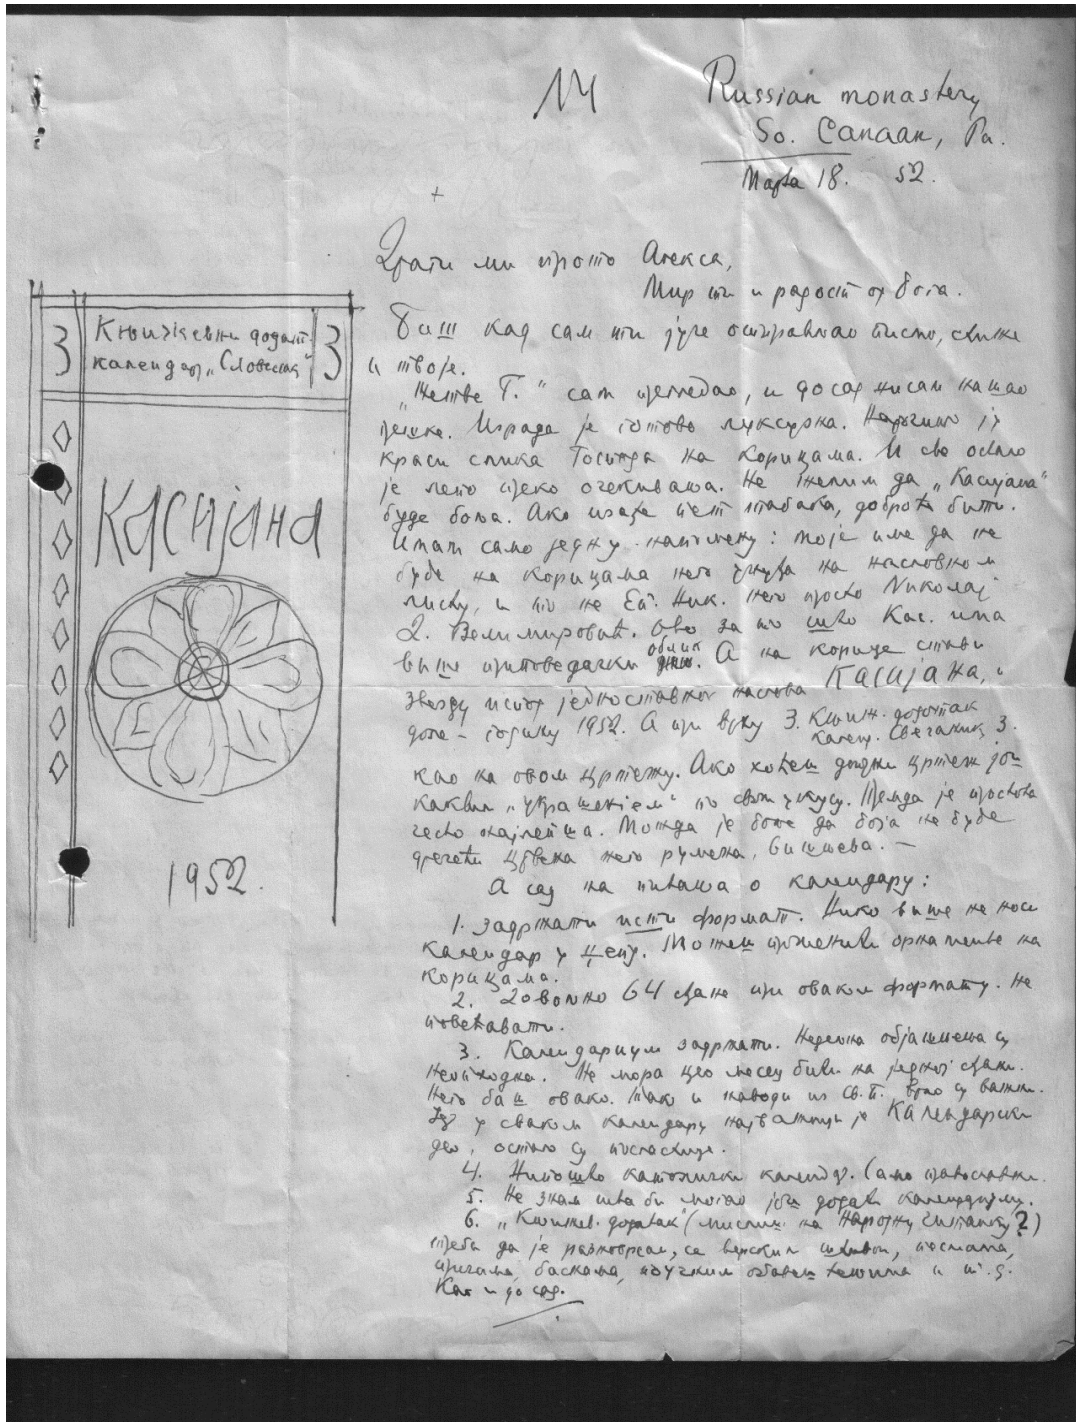 14
Russian monastery
So. Canaan, Pa.
Марта 18. 52.
+
Драги ми прото Алекса,
Мир ти и радост од Бога.
Таш кад сам ти јуче отправљао писмо, стиже
и твоје.
„Жетве Г.“ сам прегледао, и досад нисам нашао
грешке. Израда је готово луксузна. Нарочито је
краси слика Господа на корицама. И све остало
је лепо преко очекивања. Не желим да „Касијана“
буде боља. Ако изађе пет табака, добро ће бити.
Имам само једну напомену: моје име да не
буде на корицама него унутра на насловном
листу, и то не Еп. Ник. него просто Николај
Д. Велимировић. Ово за то што Кас. има
више приповедачки облик. А на корице стави
звезду испод једноставног наслова Касијана, и
доле – годину 1952. А при врху 3. Књиж. додатак
Календ. Свечаник 3.
као на овом цртежу. Ако хоћеш допуни цртеж још
каквим „украшенієм“ по свом укусу. Премда је простота
често најлепша. Можда је боље да боја не буде
дречећи црвена него румена, вишњева. —
А сад на питања о календару:
1. Задржати исти формат. Нико више не носи
календар у џепу. Можеш променити орнаменте на
корицама.
2. Довољно 64 стране при оваком формату. Не
повећавати.
3. Календариум задржати. Недељна објашњења су
неопходна. Не мора цео месец бити на једној страни.
Него баш овако. Тако и наводи из Св. П. врло су важни.
Јер у сваком календару најважнији је Календарски
део, остало су посластице.
4. Нипошто католички календар. Само православни.
5. Не знам шта би могао још додати календариуму.
6. „Књижев. додатак“ (мислиш на Народну читанку?)
треба да је разноврсан, са верским штивом, песмама,
причама, баснама, поучним обавештењима и т.д.
Као и до сад.
3 Књижевни додат. 3
календар „Свечаник“
Касијана
1952.